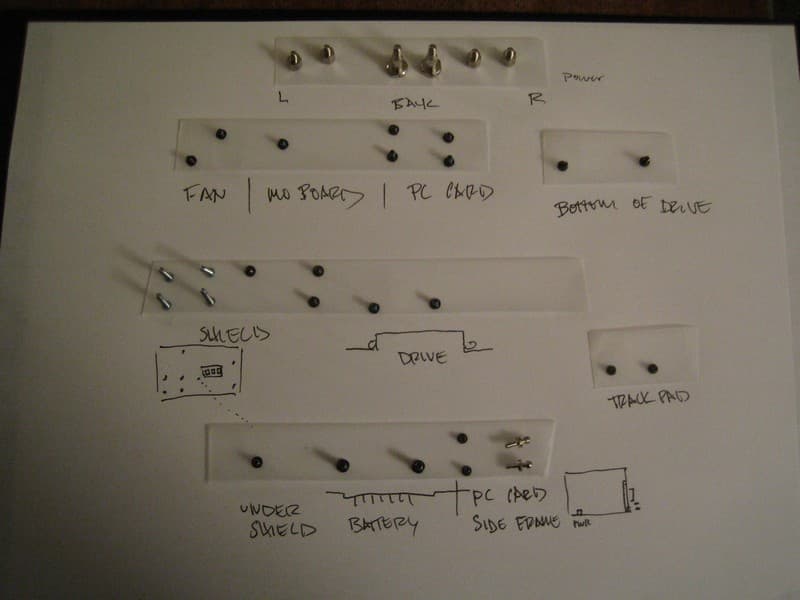 Power
L BACK R
FAN | MO BOARD | PC CARD
BOTTOM OF DRIVE
SHIELD
DRIVE
TRACK PAD
UNDER
SHIELD
BATERY
PC CARD
SIDE FRAME
PWR